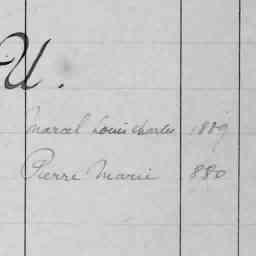 U.
Marcel Louis Charles 1889
Pierre Marie 880